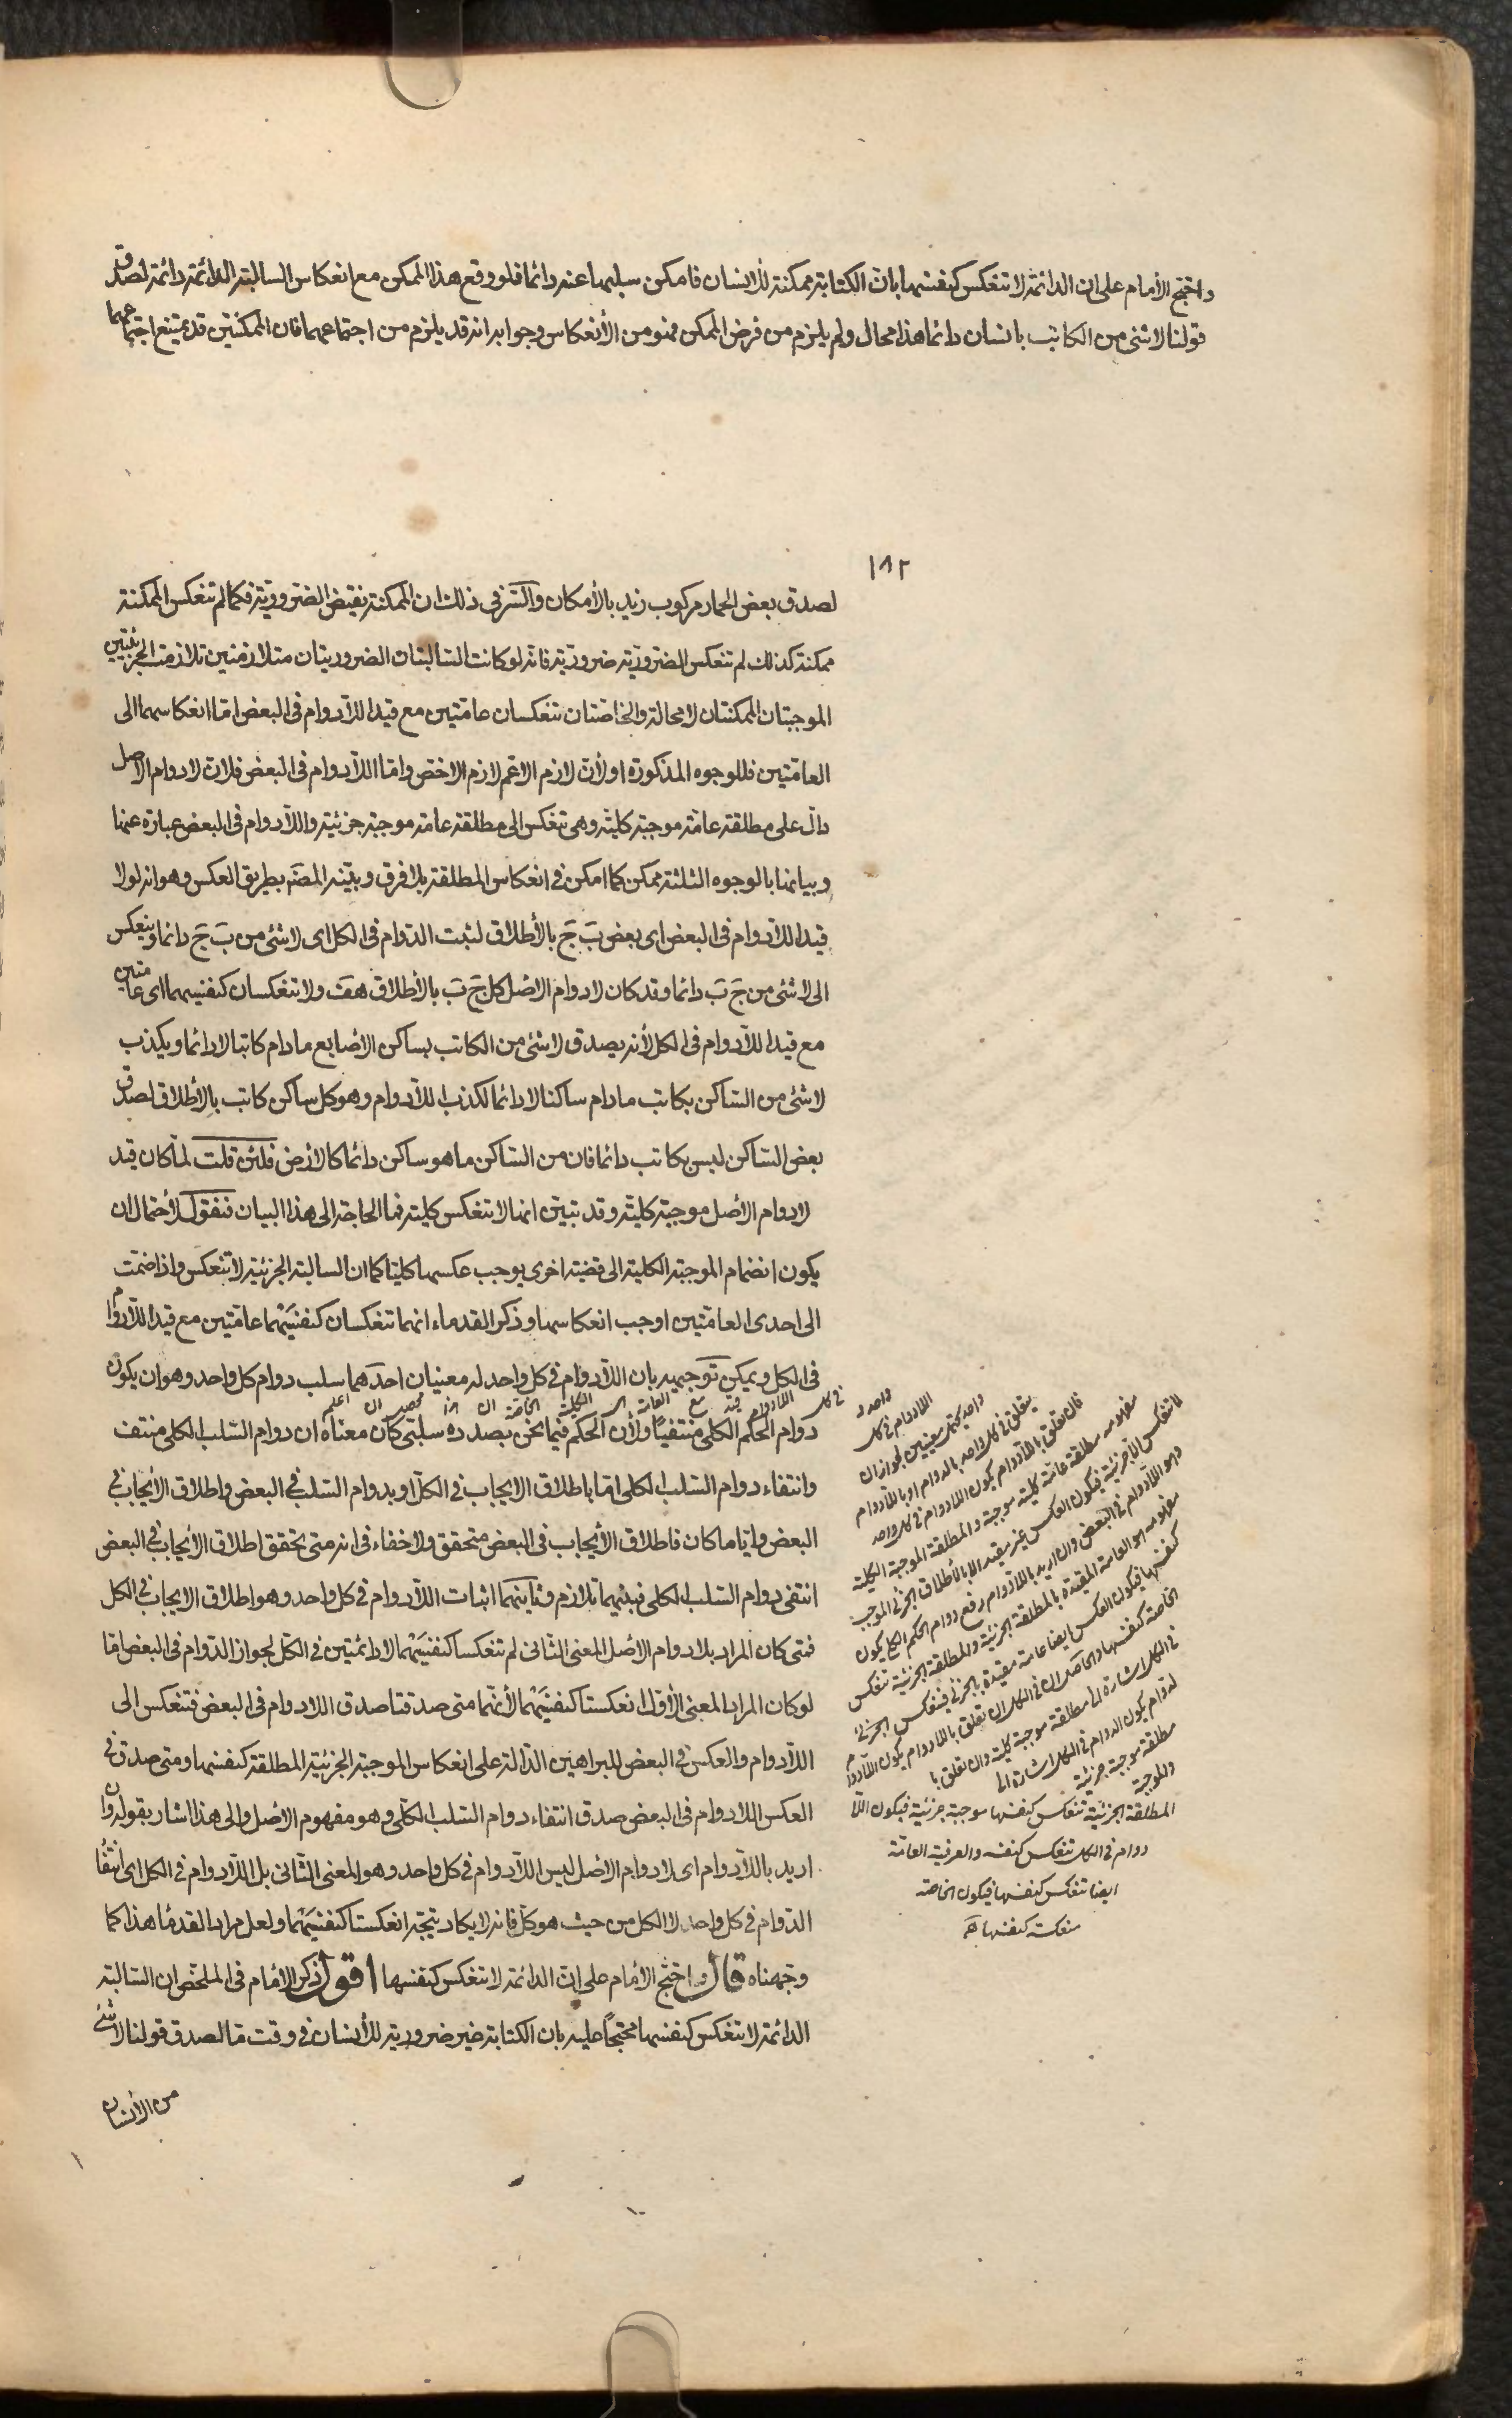 واحتج الأمام على ان الدائمة لا تنعكس كنفسها بان الكتابة ممكنة للأنسان فامكن سلبها عنه دائما فلو وقع هذا الممكن مع انعكاس السالبة الدائمة دائمة لصدق
قولنا لا شئ من الكاتب بانسان دائما هذا محال ولم يلزم من فرض الممكن فهو من الأنعكاس وجوابه انه قد يلزم من اجتماعهما فان الممكنتين قد يمتنع اجتماعهما
١٨٢
لصدق بعض الحمار مركوب زيد بالأمكان والسّر فى ذلك ان الممكنة نقيض الضرورية فكما لم تنعكس الممكنة
ممكنة كذلك لم تنعكس الضرورية ضرورية فانه لو كانت السالبتان الضروريتان متلازمتين تلازمت الجزئيتين
الموجبتان الممكنتان لا محالة والخاصتان تنعكسان عامتين مع قيد اللّادوام فى البعض امّا انعكاسهما الى
العامّتين فللوجوه المذكورة او لأنّ لازم الاعم لازم الاخص وامّا اللّادوام فى البعض فلان لا دوام الاصل
دالّ على مطلقة عامّة موجبة كلية وهى تنعكس الى مطلقة عامة موجبة جزئية واللّادوام فى البعض عبارة عنها
وبيانها بالوجوه الثلثة ممكن كما امكن فى انعكاس المطلقة بلا فرق وبيّنه المصّه بطريق العكس وهو انه لولا
قيد اللّادوام فى البعض اى بعض بَ جَ بالأطلاق لثبت الدّوام فى الكل اى لا شئ من بَ جَ دائما وينعكس
الى لا شئ من جَ بَ دائما وقد كان لا دوام الاصل كل جَ بَ بالأطلاق هفَ ولا تنعكسان كنفسيهما اى عامّتين
مع قيد اللّادوام فى الكل لأنه يصدق لا شئ من الكاتب بساكن الأصابع ما دام كاتبا لا دائما ويكذب
لا شئ من الساكن بكاتب ما دام ساكنا لا دائما لكذب اللّادوام وهو كل ساكن كاتب بالأطلاق لصدق
بعض الساكن ليس بكاتب دائما فان من الساكن ما هو ساكن دائما كالارض فلئن قلت لمّا كان قيد
لا دوام الأصل موجبة كلية وقد تبيّن انها لا تنعكس كلية فما الحاجة الى هذا البيان فنقول لأحتمال ان
يكون انضمام الموجبة الكلية الى قضية اخرى يوجب عكسها كليا كما ان السالبة الجزئية لا تنعكس واذا ضمّت
الى احدى العامّتين اوجب انعكاسها وذكر القدماء انهما تنعكسان كنفسَيْهما عامّتين مع قيد اللّادوام
فى الكل ويمكن توجيهه بان اللّادوام فى كل واحد له معنيان احدهما سلب دوام كل واحد وهو ان يكون
اعلم ان محصل هذا ان الخاصة الكلية هى العامة مع قيد اللادوام فى كل
دوام الحكم الكلى منتفيًا ولأن الحكم فيما نحن بصدده سلبىّ كان معناه ان دوام السّلب الكلى منتف
وانتفاء دوام السّلب الكلى امّا باطلاق الايجاب فى الكل او بدوام السّلب فى البعض واطلاق الأيجاب فى
البعض وايّا ما كان فاطلاق الأيجاب فى البعض متحقق ولا خفاء فى انه متى تحقق اطلاق الأيجاب فى البعض
انتفى دوام السّلب الكلى فبينهما تلازم وثانيهما اثبات اللّادوام فى كل واحد وهو اطلاق الايجاب فى الكل
فمتى كان المراد بلا دوام الاصل المعنى الثانى لم تنعكسا كنفسيْهما لا دائمتين فى الكل لجواز الدّوام فى البعض امّا
لو كان المراد المعنى الأول انعكستا كنفسَيْهما لأنّهما متى صدقتا صدق اللادوام فى البعض فتنعكس الى
اللّادوام والعكس فى البعض للبراهين الدّالة على انعكاس الموجبة الجزئية المطلقة كنفسها ومتى صدق فى
العكس اللّادوام فى البعض صدق انتفاء دوام السّلب الكلّى وهو مفهوم الاصل والى هذا اشار بقوله وان
اريد باللّادوام اى لا دوام الاصل ليس اللّادوام فى كل واحد وهو المعنى الثانى بل اللّادوام فى الكل اى انتفاء
الدّوام فى كل واحد لا الكل من حيث هو كلّ فانه لا يكاد يتّجه انعكستا كنفسيْهما ولعل مراد القدماء هذا كما
وجّهناه قال واحتجّ الأمام على انّ الدائمة لا تنعكس كنفسها اقول ذكر الامام فى الملخّص ان السّالبة
الدائمة لا تنعكس كنفسها محتجًّا عليه بان الكتابة غير ضرورية للأنسان فى وقت مّا لصدق قولنا لا شئ
من الأنسان
واحد و
اللادوام فى كل
واحد يحتمل معنيين لجواز ان
يتعلق فى كل واحد بالدوام او باللّادوام
فان تعلق باللّادوام يكون اللادوام فى كل واحد
مفهومه مطلقة عامّة كلية موجبة والمطلقة الموجبة الكلية
لا تنعكس الا جزئية فيكون العكس غير مقيد الا بالأطلاق الجزئى الموجب
وهو اللّادوام فى البعض وان اريد باللّادوام رفع دوام الحكم الكلى يكون
مفهومه هو العامة المقيدة بالمطلقة الجزئية والمطلقة الجزئية تنعكس
كنفسها فيكون العكس ايضا عامة مقيدة بالجزئى فتنعكس الجزئى
الخاصة كنفسها والحاصل ان فى الكل ان تعلق باللادوام يكون اللّادوام
فى الكل اشارة الى مطلقة موجبة كلية وان تعلق با
لدوام يكون الدوام فى الكل اشارة الى
مطلقة موجبة جزئية
والموجبة
المطلقة الجزئية تنعكس كنفسها موجبة جزئية فيكون اللّا
دوام فى الكل تنعكس كنفسه والعرفية العامّة
ايضا تنعكس كنفسها فيكون الخاصة
منعكسة كنفسها